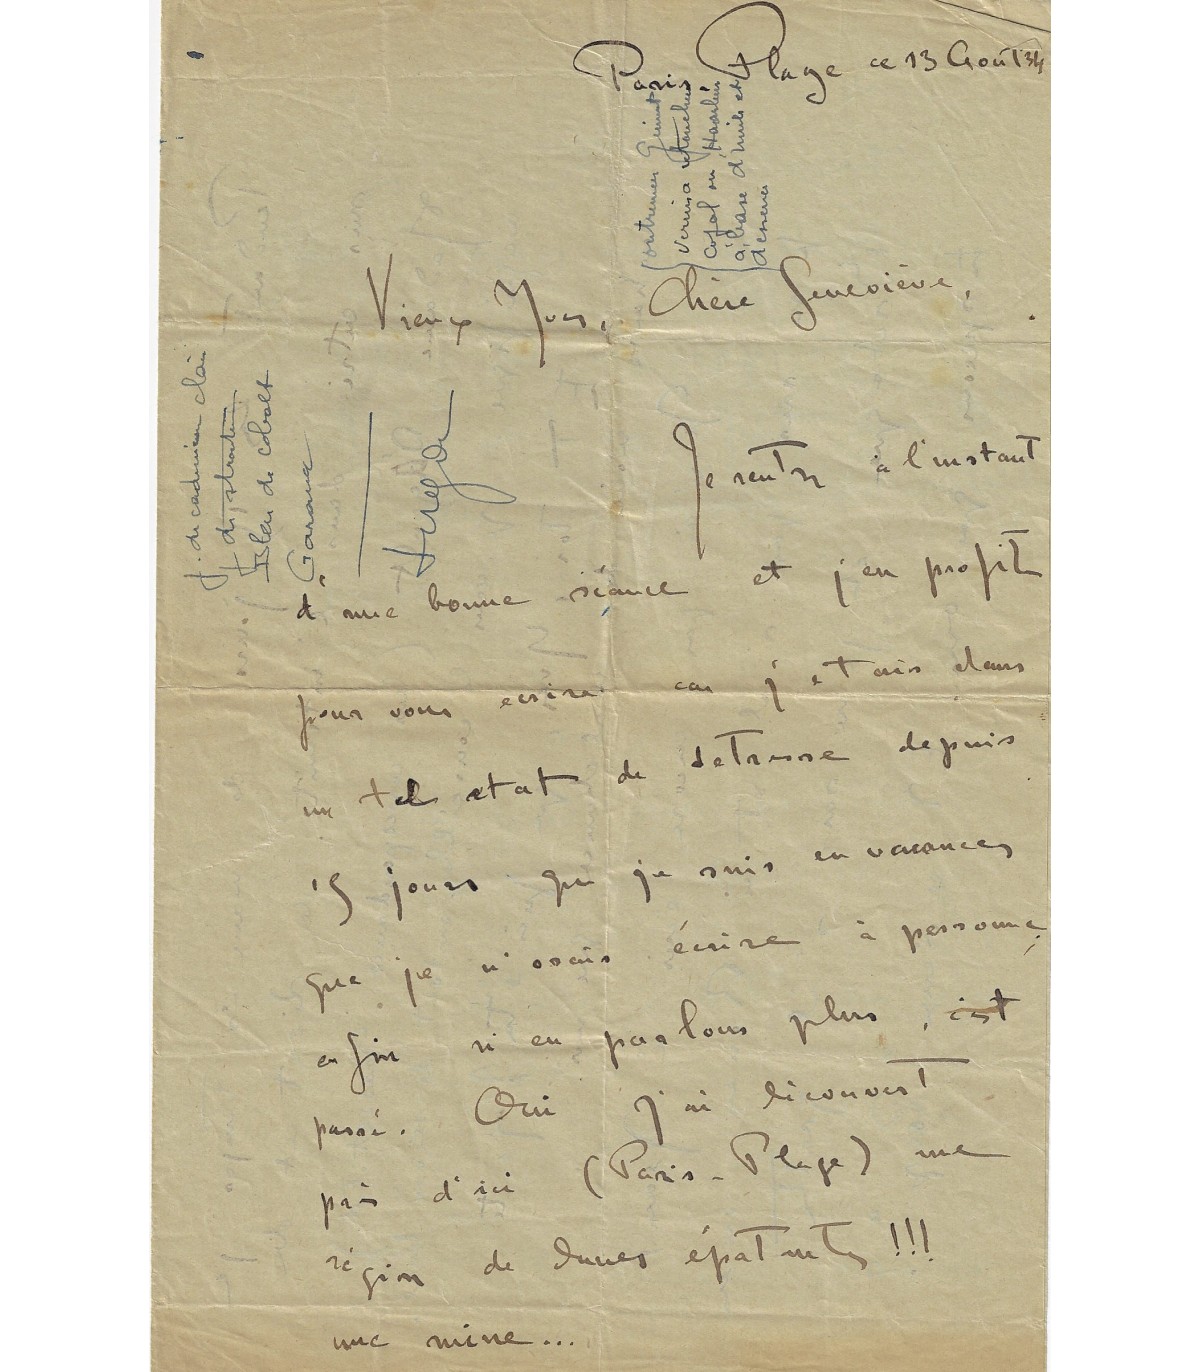 Paris-Plage ce 13 Août 34
Vernis à retoucher
copal ou Haarlem
à base d'huile et
d'essences
Vieux Yves, Chère Geneviève,
J. de cadmium clair
T. de strontiane
Bleu de cobalt
Garance
Je rentre à l'instant
d'une bonne séance et j'en profite
pour vous ecrire car j'etais dans
un tel etat de detresse depuis
15 jours que je suis en vacances
que je n'osais écrire à personne,
enfin n'en parlons plus, c'est
passé. Oui j'ai découvert
près d'ici (Paris-Plage) une
région de dunes épatantes !!!
une mine...